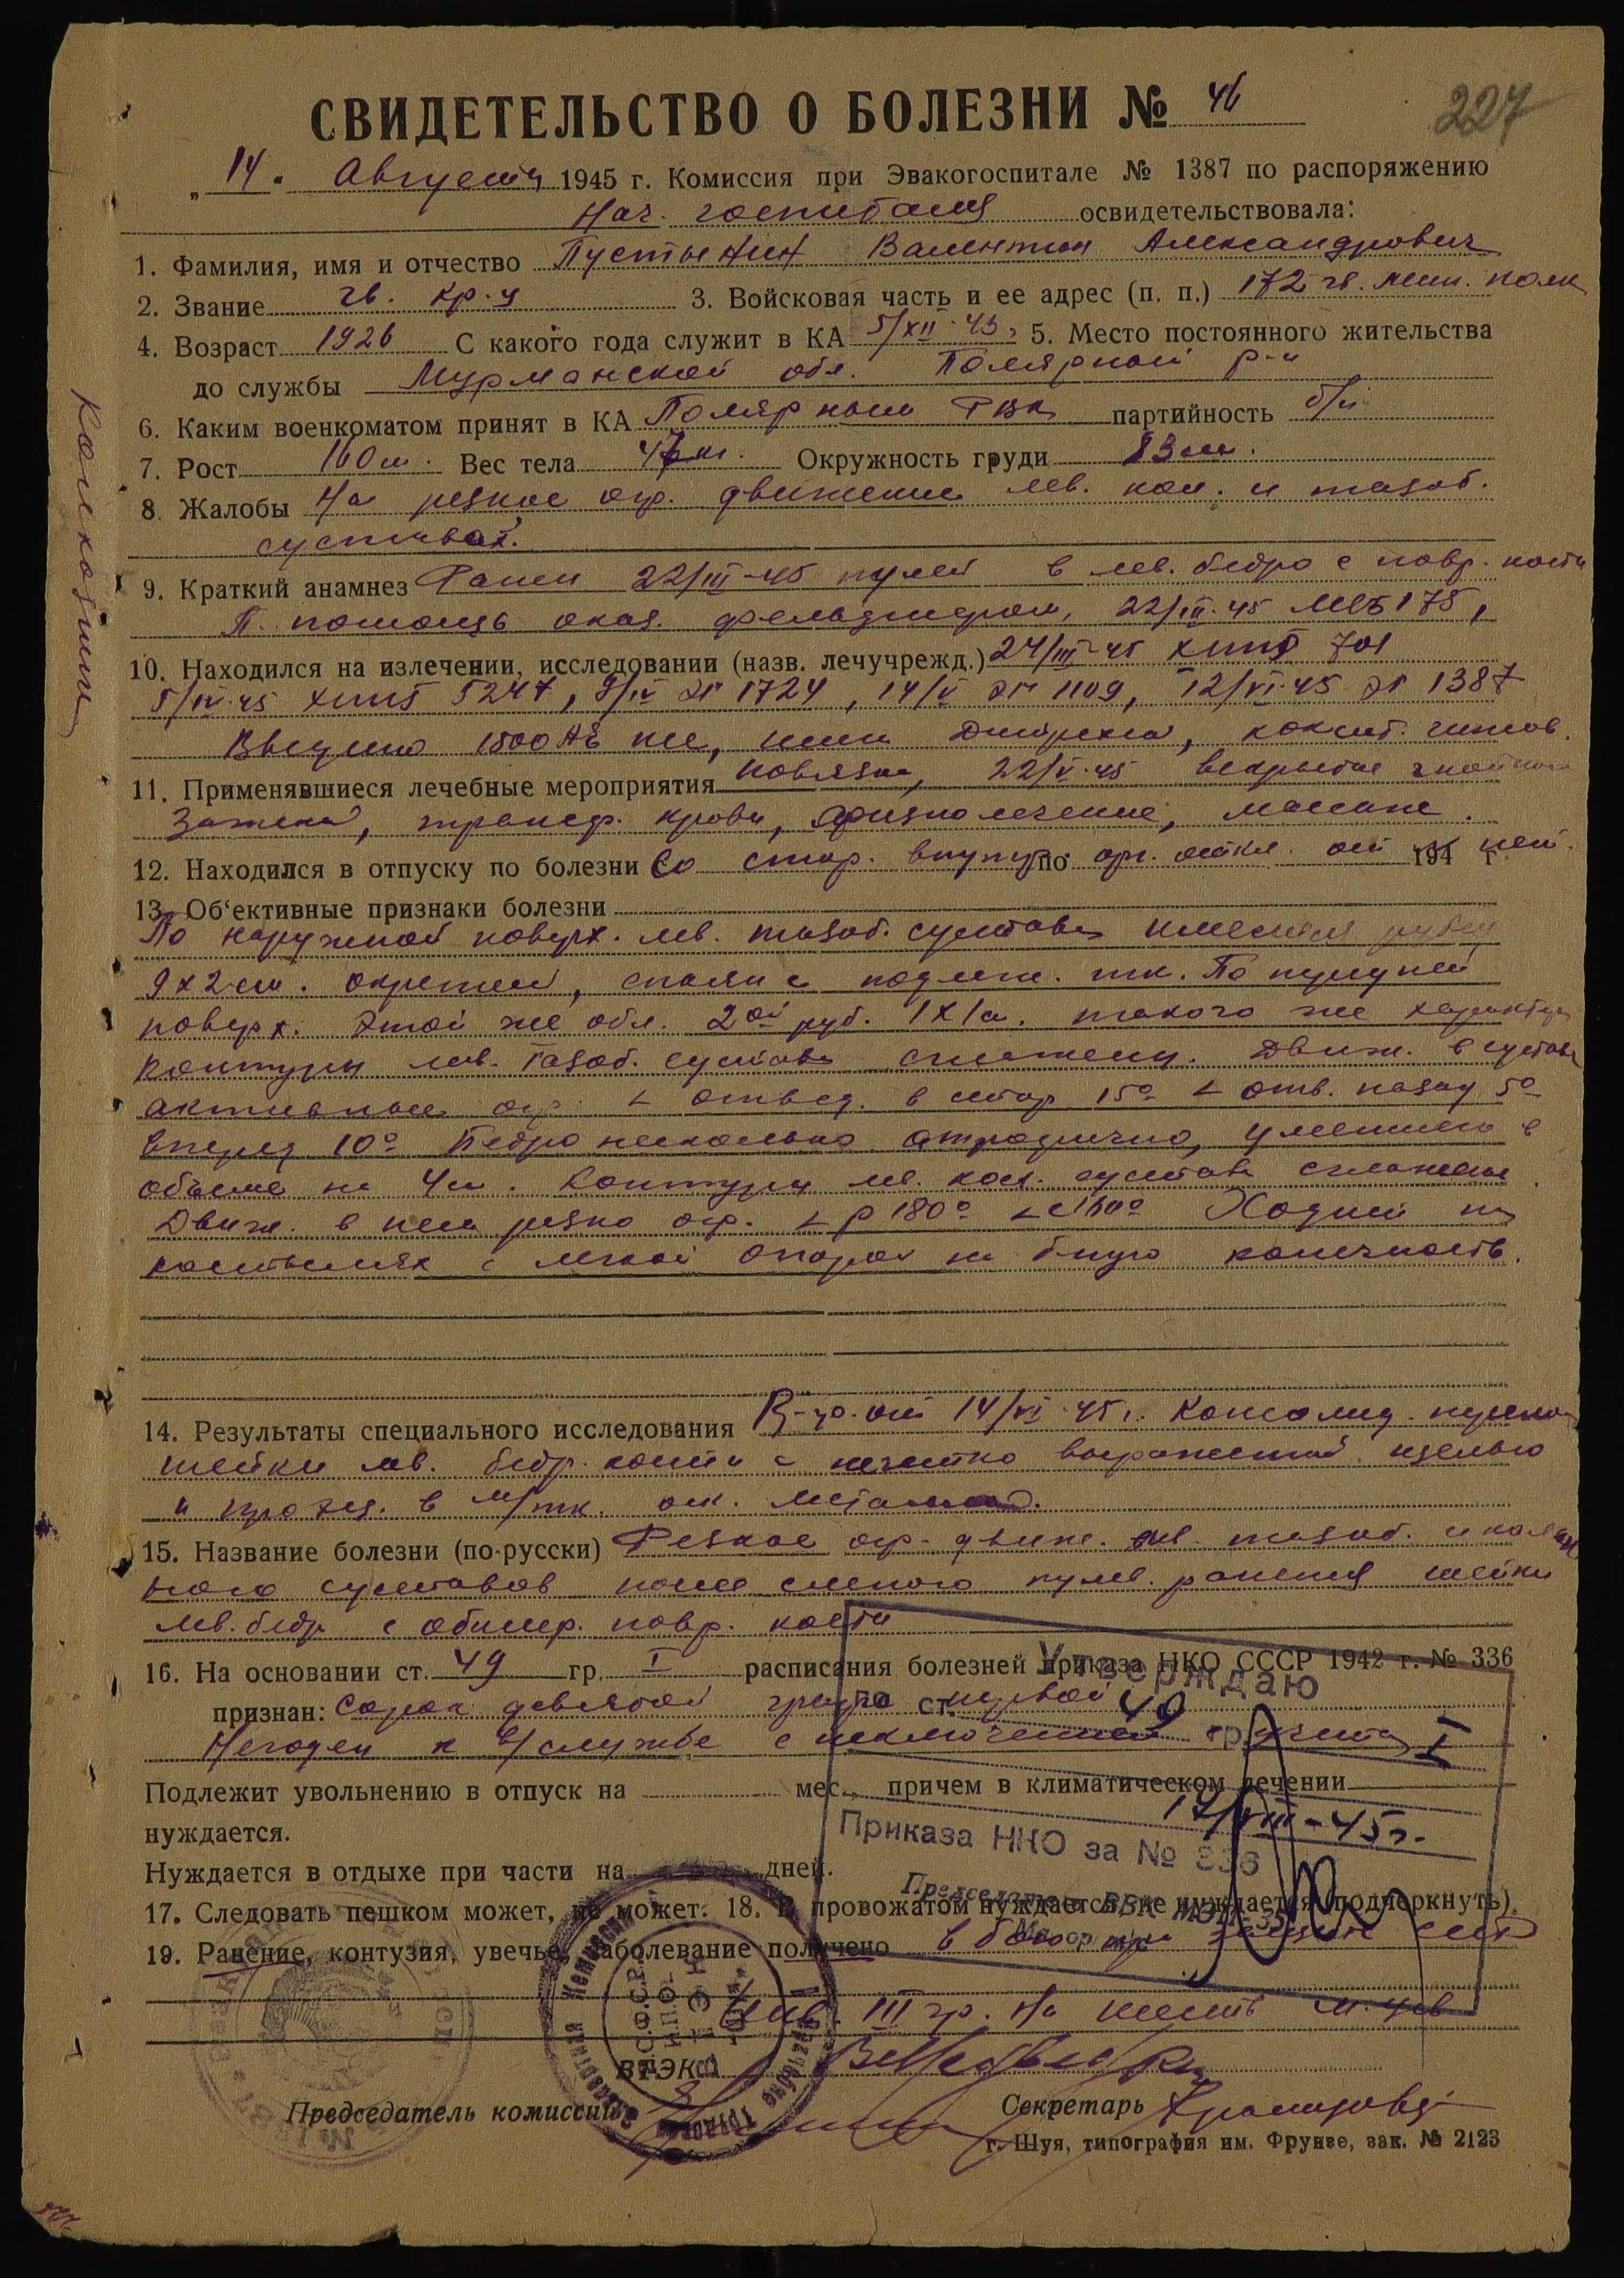 227
СВИДЕТЕЛЬСТВО О БОЛЕЗНИ № 46
„14" Августа 1945 г. Комиссия при Эвакогоспитале № 1387 по распоряжению
Нач. госпиталя освидетельствовала:
1. Фамилия, имя и отчество Пустынин Валентин Александрович
2. Звание гв. кр-ц 3. Войсковая часть и ее адрес (п. п.) 172 гв. мин. полк
4. Возраст 1926 С какого года служит в КА 5/XII-43 г 5. Место постоянного жительства
до службы Мурманской обл. Полярный р-н
6. Каким военкоматом принят в КА Полярным РВК партийность б/п
7. Рост 160 см. Вес тела 47 кг. Окружность груди 83 см.
8. Жалобы На резкое огр. движение лев. кол. и тазоб.
суставах.
9. Краткий анамнез Ранен 22/III-45 пулей в лев. бедро с повр. кости
П. помощь оказ. фельдшером, 22/III-45 МСБ 175,
10. Находился на излечении, исследовании (назв. лечучрежд.) 24/III-45 ХППГ 701
5/IV-45 ХППГ 5247, 9/IV ЭГ 1724, 14/V ЭГ 1109, 12/VI-45 ЭГ 1387
Введено 1500 АЕ пс, шин Дитрихса, коксит. гипсов.
11. Применявшиеся лечебные мероприятия повязка, 22/V-45 вскрытие гнойного
затека, трансф. крови, физиолечение, массаж.
12. Находился в отпуску по болезни Со стор. внутр. по орг. откл. от 194 г нет.
13. Об‘ективные признаки болезни
По наружной поверх. лев. тазоб. сустава имеется рубец
9х2 см. окрепший, спаян с подлеж. тк. По
поверх. этой же обл. 2ой руб. 1х1 см. такого же характера
Контуры лев. тазоб. сустава сглажены. Движ. в суставе
активные огр. ∠ отвед. в стор. 15° ∠ отв. назад 5°
вперед 10° Бедро несколько атрофично, уменьшено в
объеме на 4 см. Контуры лев. кол. сустава сглажены.
Движ. в нем резко огр. ∠ р 180° ∠ с 160° Ходит на
костылях с легкой опорой на б-ную конечность.
14. Результаты специального исследования R-гр. от 14/VI-45 г. Консолид.
шейки лев. бедр. кости с нечетко выраженной щелью
и в м/тк. оск. металла.
15. Название болезни (по-русски) Резкое огр. движ. лев. тазоб. и колен
ного суставов после слепого пулев. ранения шейки
лев. бедр с обшир. повр. кости
16. На основании ст. 49 гр. I расписания болезней приказа НКО СССР 1942 г. № 336
признан: Сорок девятой графа первой
Негоден к в/службе с исключением с учета
Подлежит увольнению в отпуск на мес., причем в климатическом лечении
нуждается.
Нуждается в отдыхе при части на дней.
17. Следовать пешком может, не может. 18. В провожатом нуждается, не нуждается (подчеркнуть).
19. Ранение, контузия, увечье, заболевание получено в бою при защите СССР
Инв. III гр.
ВТЭК
Председатель комиссии
Секретарь
г. Шуя, типография им. Фрунзе, зак. № 2123
Утверждаю
по ст. 49
гр. I
17/VIII-45 г.
Приказа НКО за № 336
Председатель ВВК МЭП-35
Колхозник